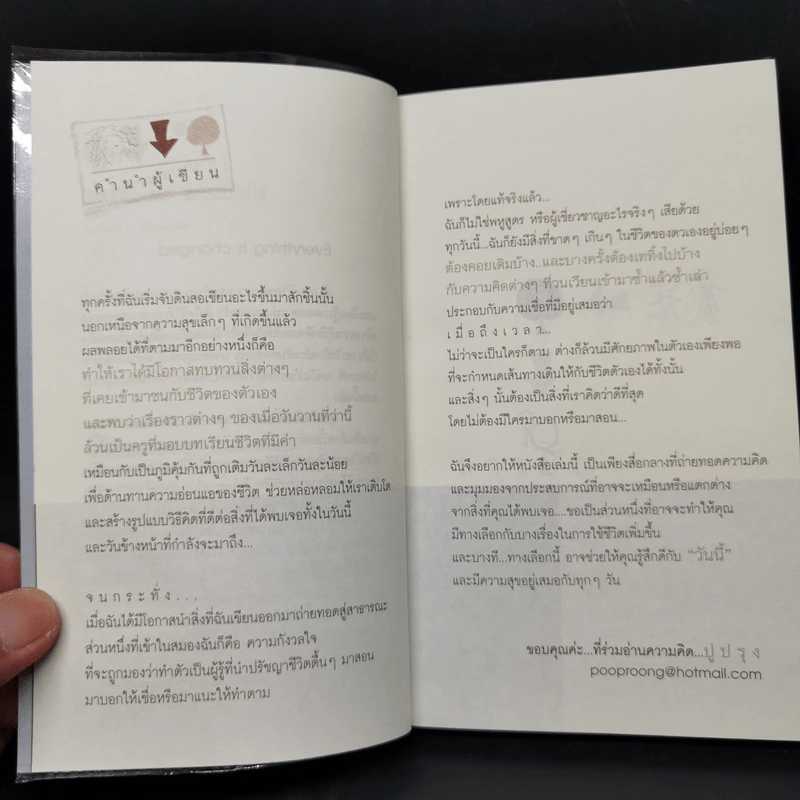 คำนำผู้เขียน
ทุกครั้งที่ฉันเริ่มจับดินสอเขียนอะไรขึ้นมาสักชิ้นนั้น
นอกเหนือจากความสุขเล็กๆ ที่เกิดขึ้นแล้ว
ผลพลอยได้ที่ตามมาอีกอย่างหนึ่งก็คือ
ทำให้เราได้มีโอกาสทบทวนสิ่งต่างๆ
ที่เคยเข้ามาชนกับชีวิตของตัวเอง
และพบว่าเรื่องราวต่างๆ ของเมื่อวันวานที่ว่านี้
ล้วนเป็นครูที่มอบบทเรียนชีวิตที่มีค่า
เหมือนกับเป็นภูมิคุ้มกันที่ถูกเติมวันละเล็กวันละน้อย
เพื่อต้านทานความอ่อนแอของชีวิต ช่วยหล่อหลอมให้เราเติบโต
และสร้างรูปแบบวิธีคิดที่ดีต่อสิ่งที่ได้พบเจอทั้งในวันนี้
และวันข้างหน้าที่กำลังจะมาถึง...
จนกระทั่ง...
เมื่อฉันได้มีโอกาสนำสิ่งที่ฉันเขียนออกมาถ่ายทอดสู่สาธารณะ
ส่วนหนึ่งที่เข้าในสมองฉันก็คือ ความกังวลใจ
ที่จะถูกมองว่าทำตัวเป็นผู้รู้ที่นำปรัชญาชีวิตตื้นๆ มาสอน
มาบอกให้เชื่อหรือมาแนะให้ทำตาม
เพราะโดยแท้จริงแล้ว...
ฉันก็ไม่ใช่พหูสูตร หรือผู้เชี่ยวชาญอะไรจริงๆ เสียด้วย
ทุกวันนี้...ฉันก็ยังมีสิ่งที่ขาดๆ เกินๆ ในชีวิตของตัวเองอยู่บ่อยๆ
ต้องคอยเติมบ้าง...และบางครั้งต้องเททิ้งไปบ้าง
กับความคิดต่างๆ ที่วนเวียนเข้ามาซ้ำแล้วซ้ำเล่า
ประกอบกับความเชื่อที่มีอยู่เสมอว่า
เมื่อถึงเวลา...
ไม่ว่าจะเป็นใครก็ตาม ต่างก็ล้วนมีศักยภาพในตัวเองเพียงพอ
ที่จะกำหนดเส้นทางเดินให้กับชีวิตตัวเองได้ทั้งนั้น
และสิ่งๆ นั้นต้องเป็นสิ่งที่เราคิดว่าดีที่สุด
โดยไม่ต้องมีใครมาบอกหรือมาสอน...
ฉันจึงอยากให้หนังสือเล่มนี้ เป็นเพียงสื่อกลางที่ถ่ายทอดความคิด
และมุมมองจากประสบการณ์ที่อาจจะเหมือนหรือแตกต่าง
จากสิ่งที่คุณได้พบเจอ....ขอเป็นส่วนหนึ่งที่อาจจะทำให้คุณ
มีทางเลือกกับบางเรื่องในการใช้ชีวิตเพิ่มขึ้น
และบางที...ทางเลือกนี้ อาจช่วยให้คุณรู้สึกดีกับ "วันนี้"
และมีความสุขอยู่เสมอกับทุกๆ วัน
ขอบคุณค่ะ...ที่ร่วมอ่านความคิด...ปูปรุง
pooproong@hotmail.com